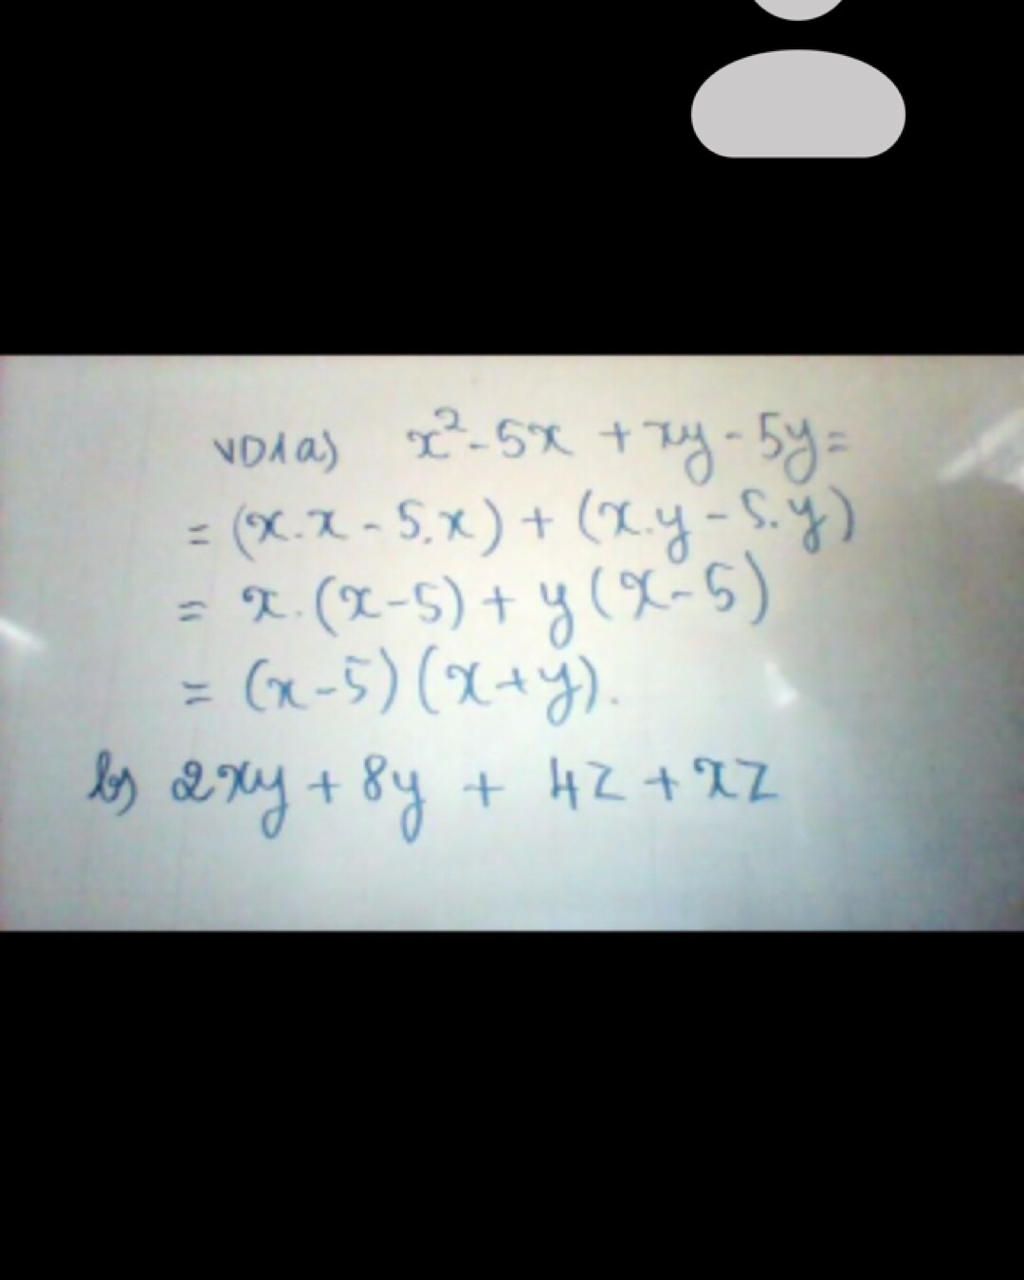 VD1a) x²-5x + xy - 5y =
= (x.x - 5.x) + (x.y - 5.y)
= x.(x-5) + y(x-5)
= (x-5)(x+y).
b) 2xy + 8y + 4z + xz